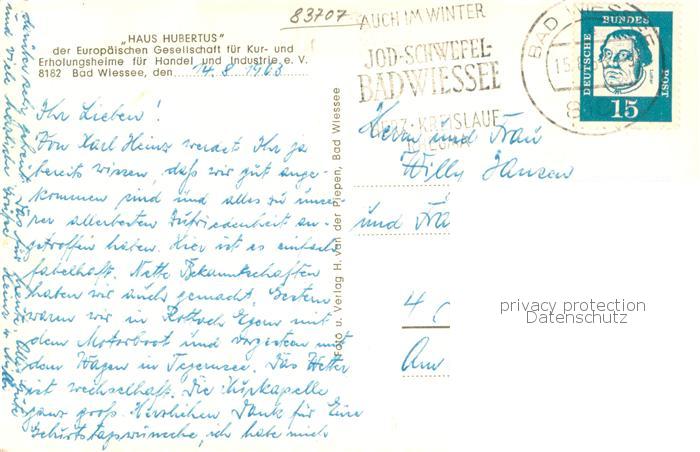 83707
„HAUS HUBERTUS"
der Europäischen Gesellschaft für Kur- und
Erholungsheime für Handel und Industrie e. V.
8182 Bad Wiessee, den 14.8.1963
Ihr Lieben!
Von Karl Heinz werdet Ihr ja
bereits wissen, daß wir gut ange-
kommen sind und alles zu unse-
rer allerbesten Zufriedenheit an-
getroffen haben. Hier ist es einfach
fabelhaft. Nette Bekanntschaften
haben wir auch gemacht. Gestern
waren wir in Rottach Egern mit
dem Motorboot und vorgestern mit
dem Wagen in Tegernsee. Das Wetter
ist wechselhaft. Die Kurkapelle
ganz groß. Herzlichen Dank für Eure
Geburtstagswünsche, ich habe mich
gefreut. Das für heute. Alles Gute
und viele herzliche Grüße Heinz u.
Foto u. Verlag H. van der Piepen, Bad Wiessee
AUCH IM WINTER
JOD-SCHWEFEL-
BAD WIESSEE
HERZ-KREISLAUF
RHEUMA
BAD WIESSEE
15
DEUTSCHE BUNDESPOST
Luther
15
Herrn und Frau
Willy Jansen
und Fra
4
Am
privacy protection
Datenschutz